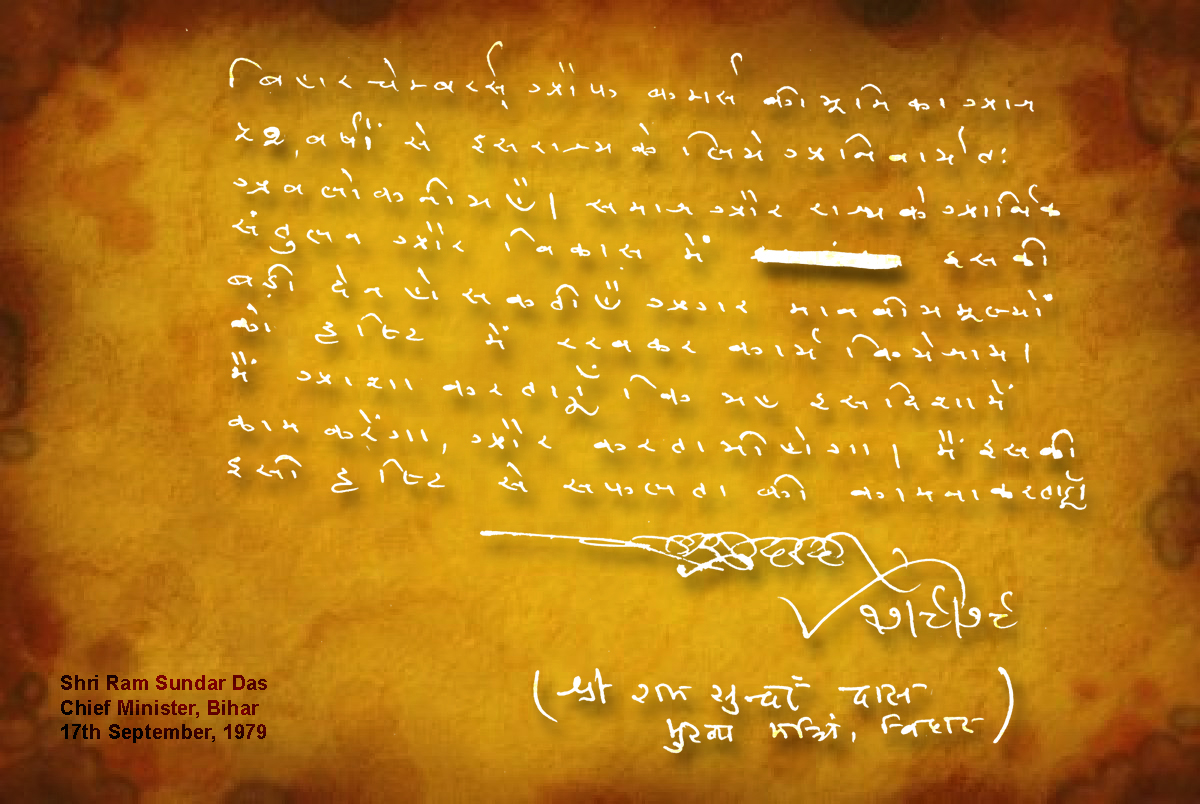 बिहार चेम्बर्स ऑफ कामर्स की भूमिका आज
५२, वर्षों से इस राज्य के लिये अनिवार्यतः
अवलोकनीय है। समाज और राज्य के आर्थिक
संतुलन और विकास में इसकी
बड़ी देन हो सकती है अगर मानवीय मूल्यों
को दृष्टि में रखकर कार्य किये जाय।
मैं आशा करता हूँ कि यह इस दिशा में
काम करेगा, और करता भी होगा। मैं इसकी
इसी दृष्टि से सफलता की कामना करता हूँ
१७/९/७९
(श्री राम सुन्दर दास
मुख्य मंत्री, बिहार)
Shri Ram Sundar Das
Chief Minister, Bihar
17th September, 1979